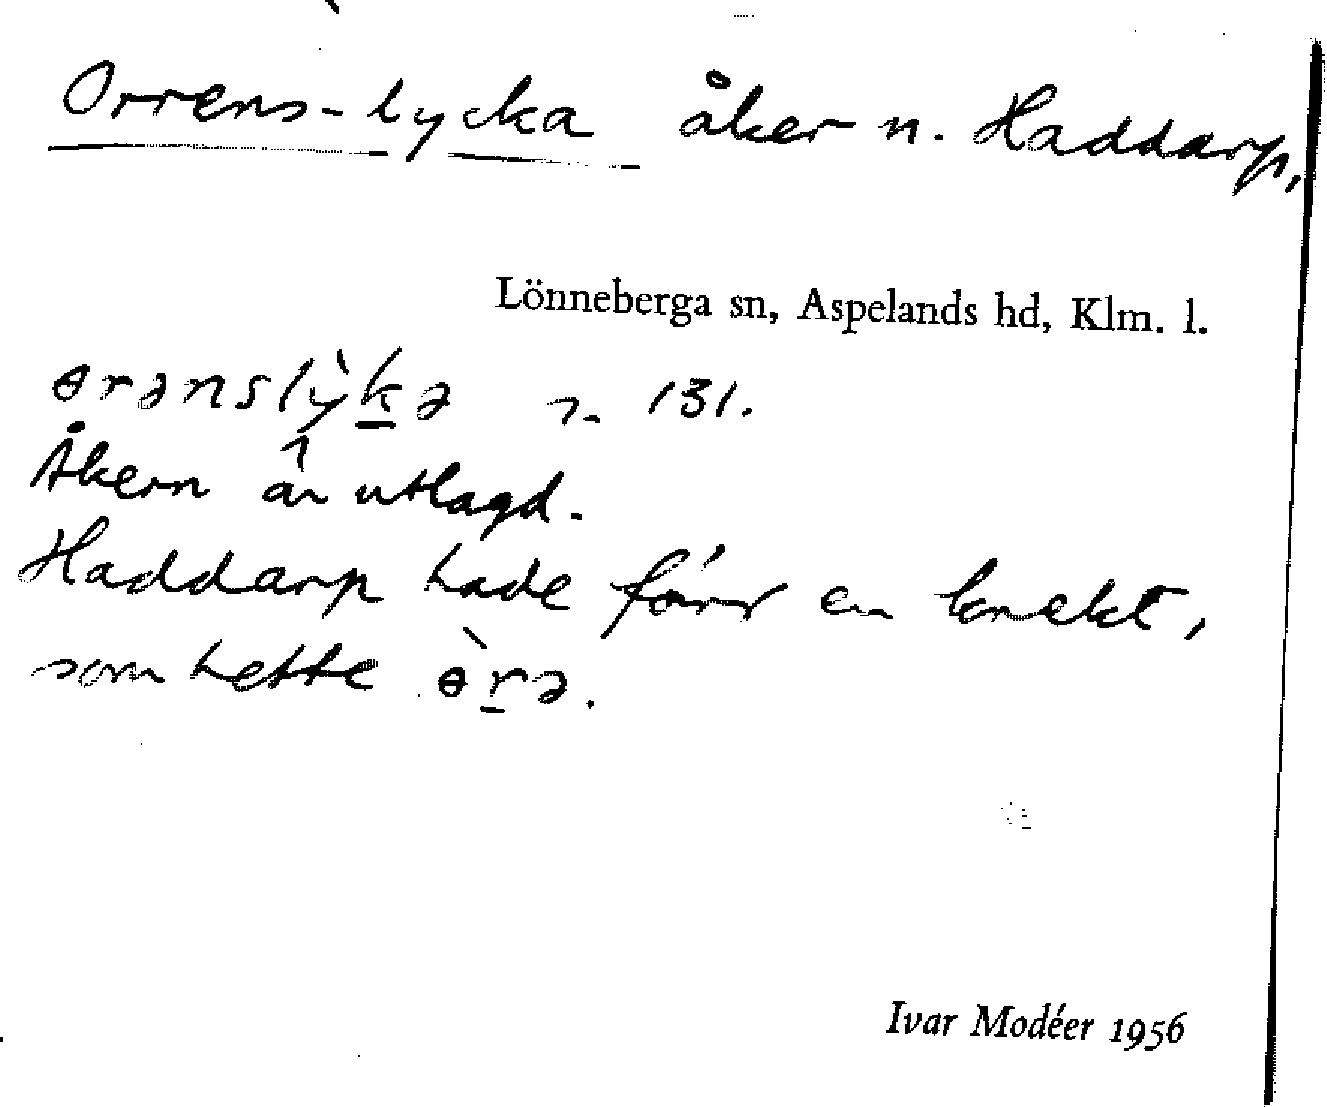 Orrens-lycka åker n. Haddarp,
Lönneberga sn, Aspelands hd, Klm. l.
ɵrənslỳk̲ə n. 131.
Åkern är utlagd.
Haddarp hade förr en knekt,
som hette ɵ̀r̲ə.
Ivar Modéer 1956